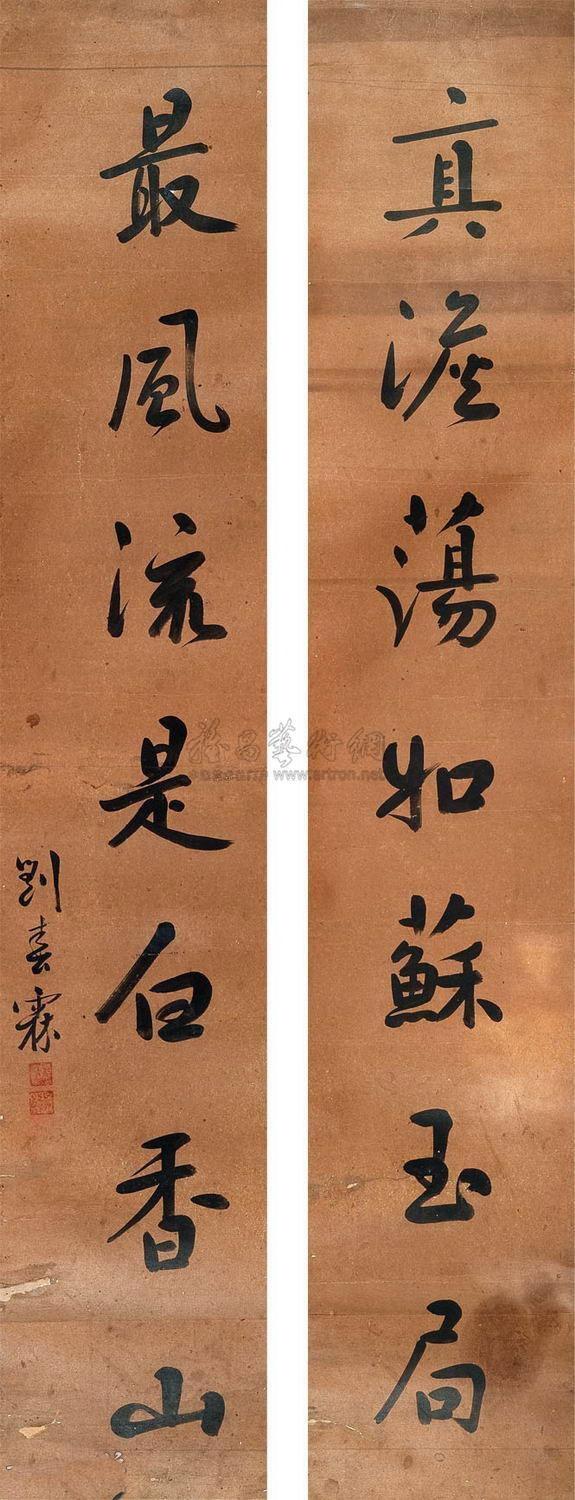 真澹蕩如蘇玉局
最風流是白香山
劉春霖
雅昌藝術網
www.artron.net